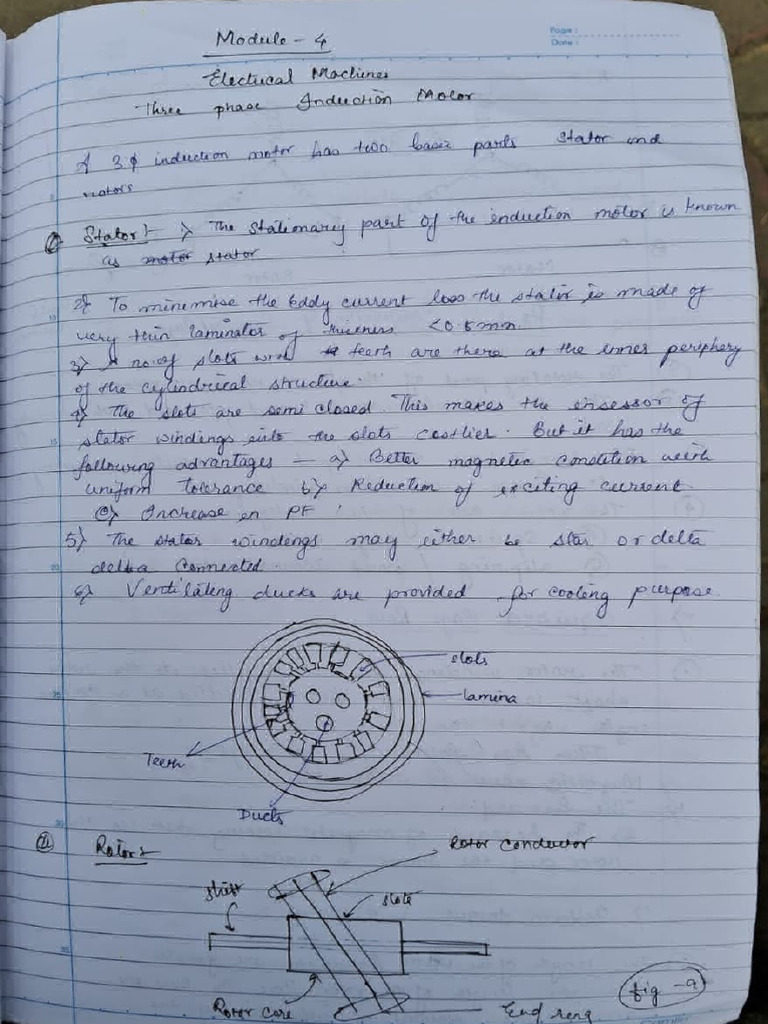 Page :
Date :
Module - 4
Electrical Machines
Three phase Induction Motor
A 3φ induction motor has two basic parts stator and
rotors
① Stator :- 1) The stationary part of the induction motor is known
as motor stator
2) To minimise the Eddy current loss the stator is made of
very thin laminator of thickness <0.5mm
3) A no. of slots with teeth are there at the inner periphery
of the cylindrical structure.
4) The slots are semi closed. This makes the of
stator windings into the slots costlier. But it has the
following advantages - a) Better magnetic condition with
uniform tolerance b) Reduction of exciting current
c) Increase in PF.
5) The stator windings may either be star or delta
delta connected.
6) Ventilating ducks are provided for cooling purpose
slots
lamina
Teeth
Ducts
② Rotor :-
Rotor conductor
shaft
slots
Rotor core
End ring
fig - a